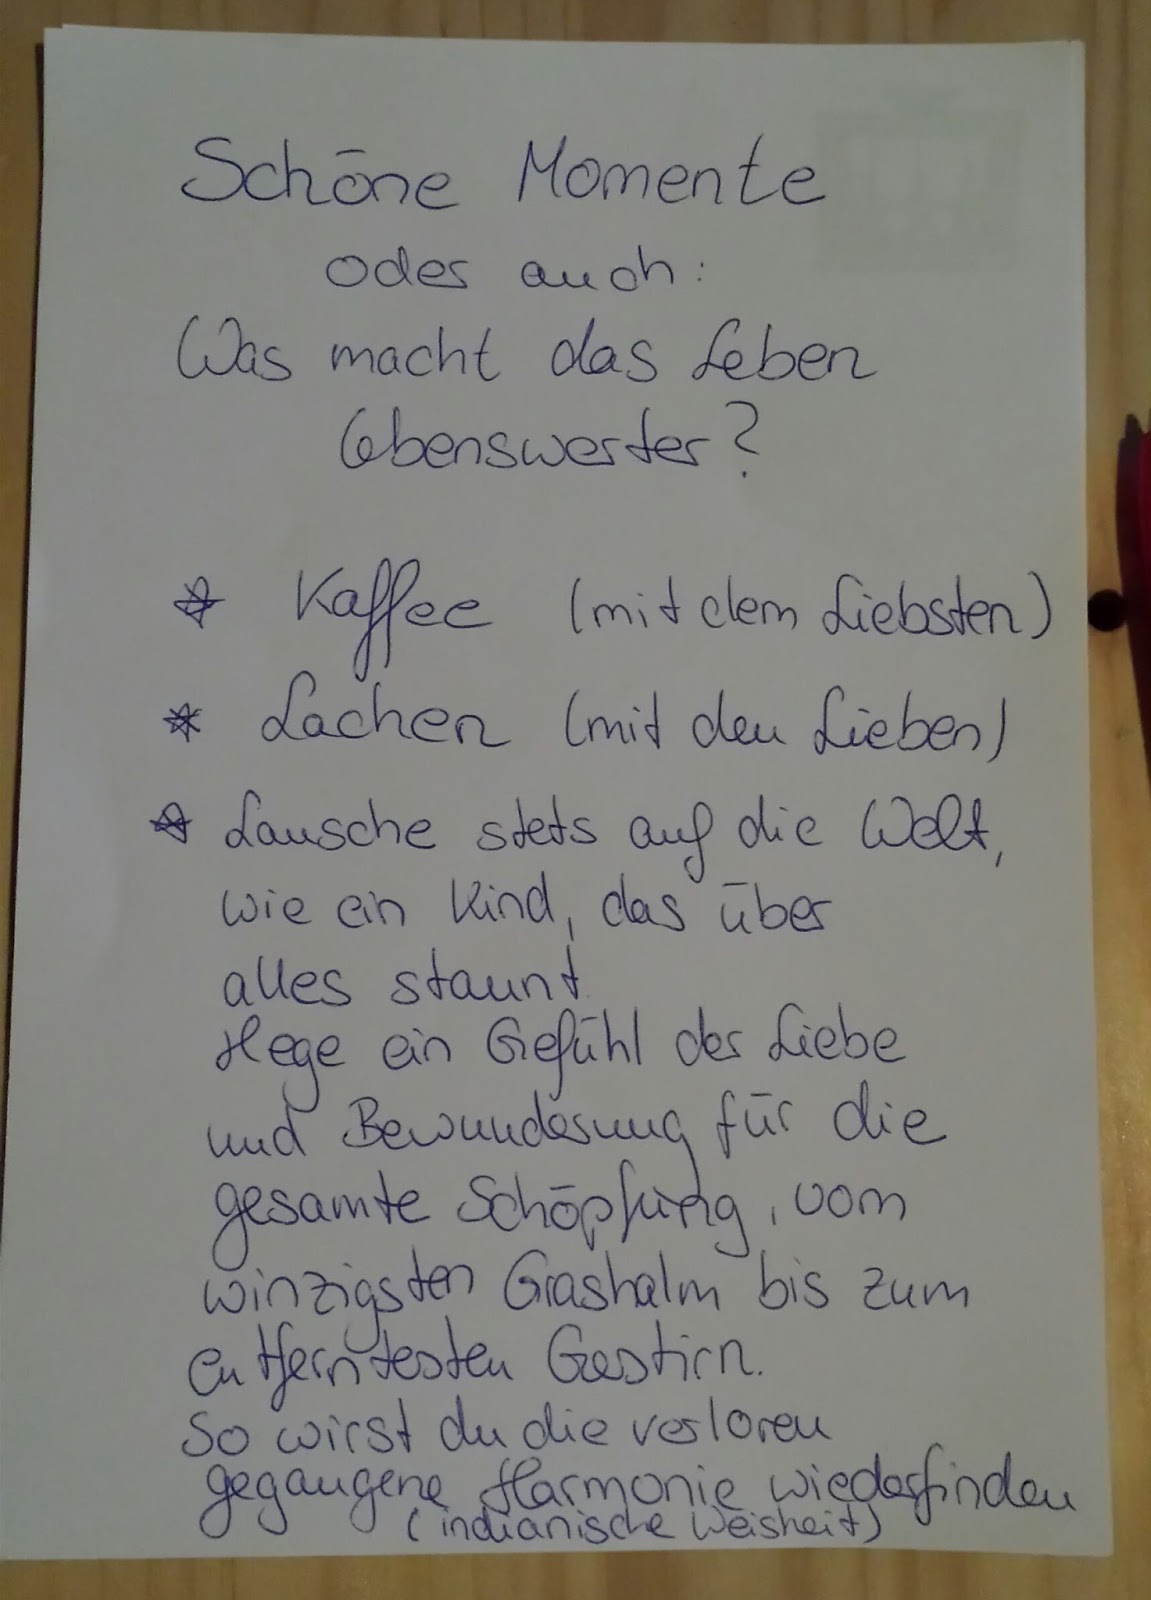 Schöne Momente
oder auch:
Was macht das Leben
lebenswerter?
* Kaffee (mit dem Liebsten)
* Lachen (mit den Lieben)
* Lausche stets auf die Welt,
wie ein Kind, das über
alles staunt.
Hege ein Gefühl der Liebe
und Bewunderung für die
gesamte Schöpfung, vom
winzigsten Grashalm bis zum
entferntesten Gestirn.
So wirst du die verloren
gegangene Harmonie wiederfinden
(indianische Weisheit)